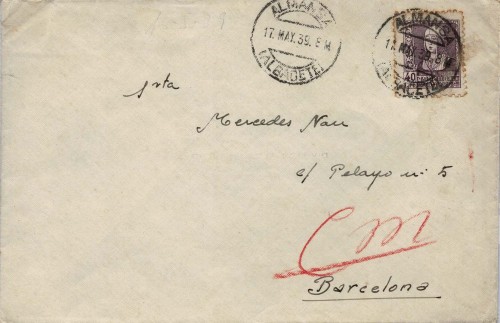 ALMANSA
17. MAY. 39. 8 M.
(ALBACETE)
ALMANSA
17. MAY. 39. 8 M.
(ALBACETE)
40
Srta
Mercedes Nau
c/ Pelayo nº 5
CM
Barcelona